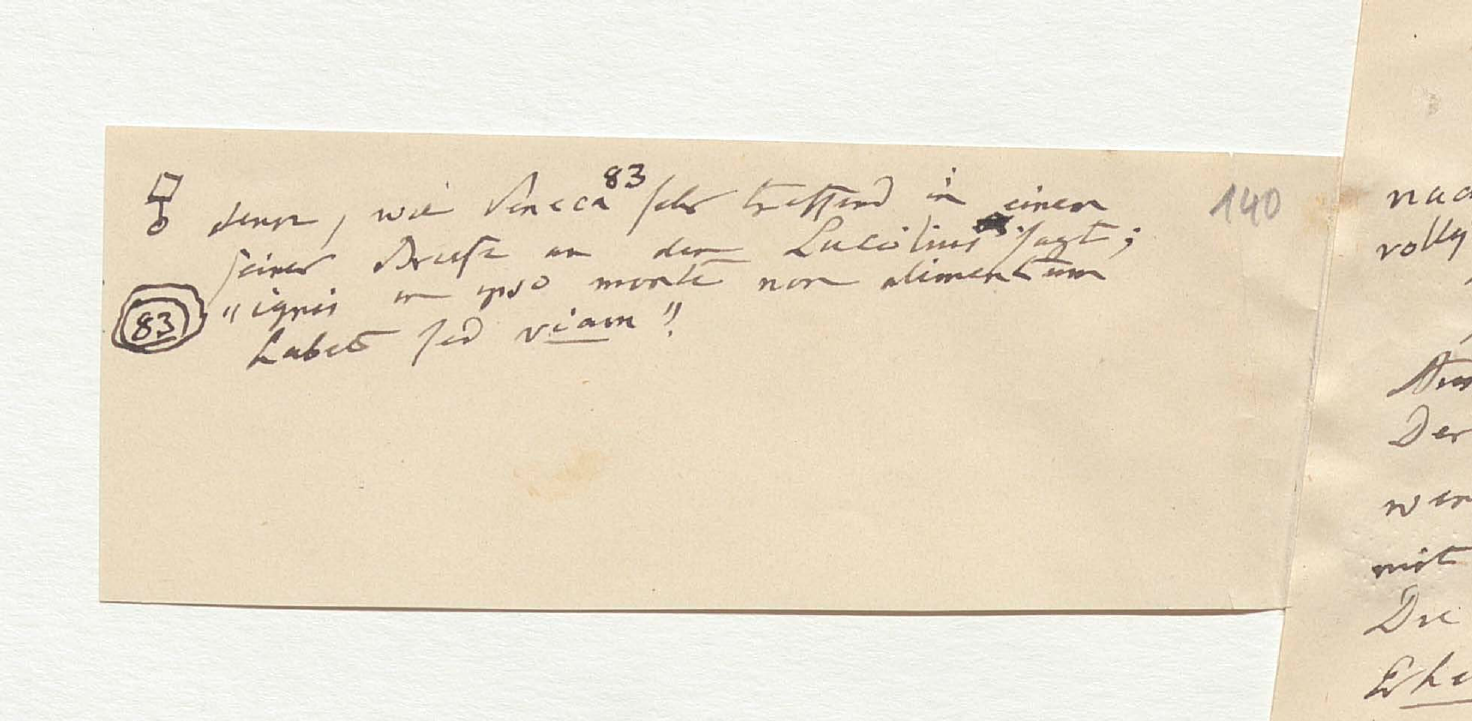 denn, wie Seneca 83 sehr treffend in einem
seiner Briefe an den Lucilius sagt;
"ignis in ipso monte non alimentum
habet sed viam"!
83
140
nac
volly
Der
wen
mit
Die
Ehe